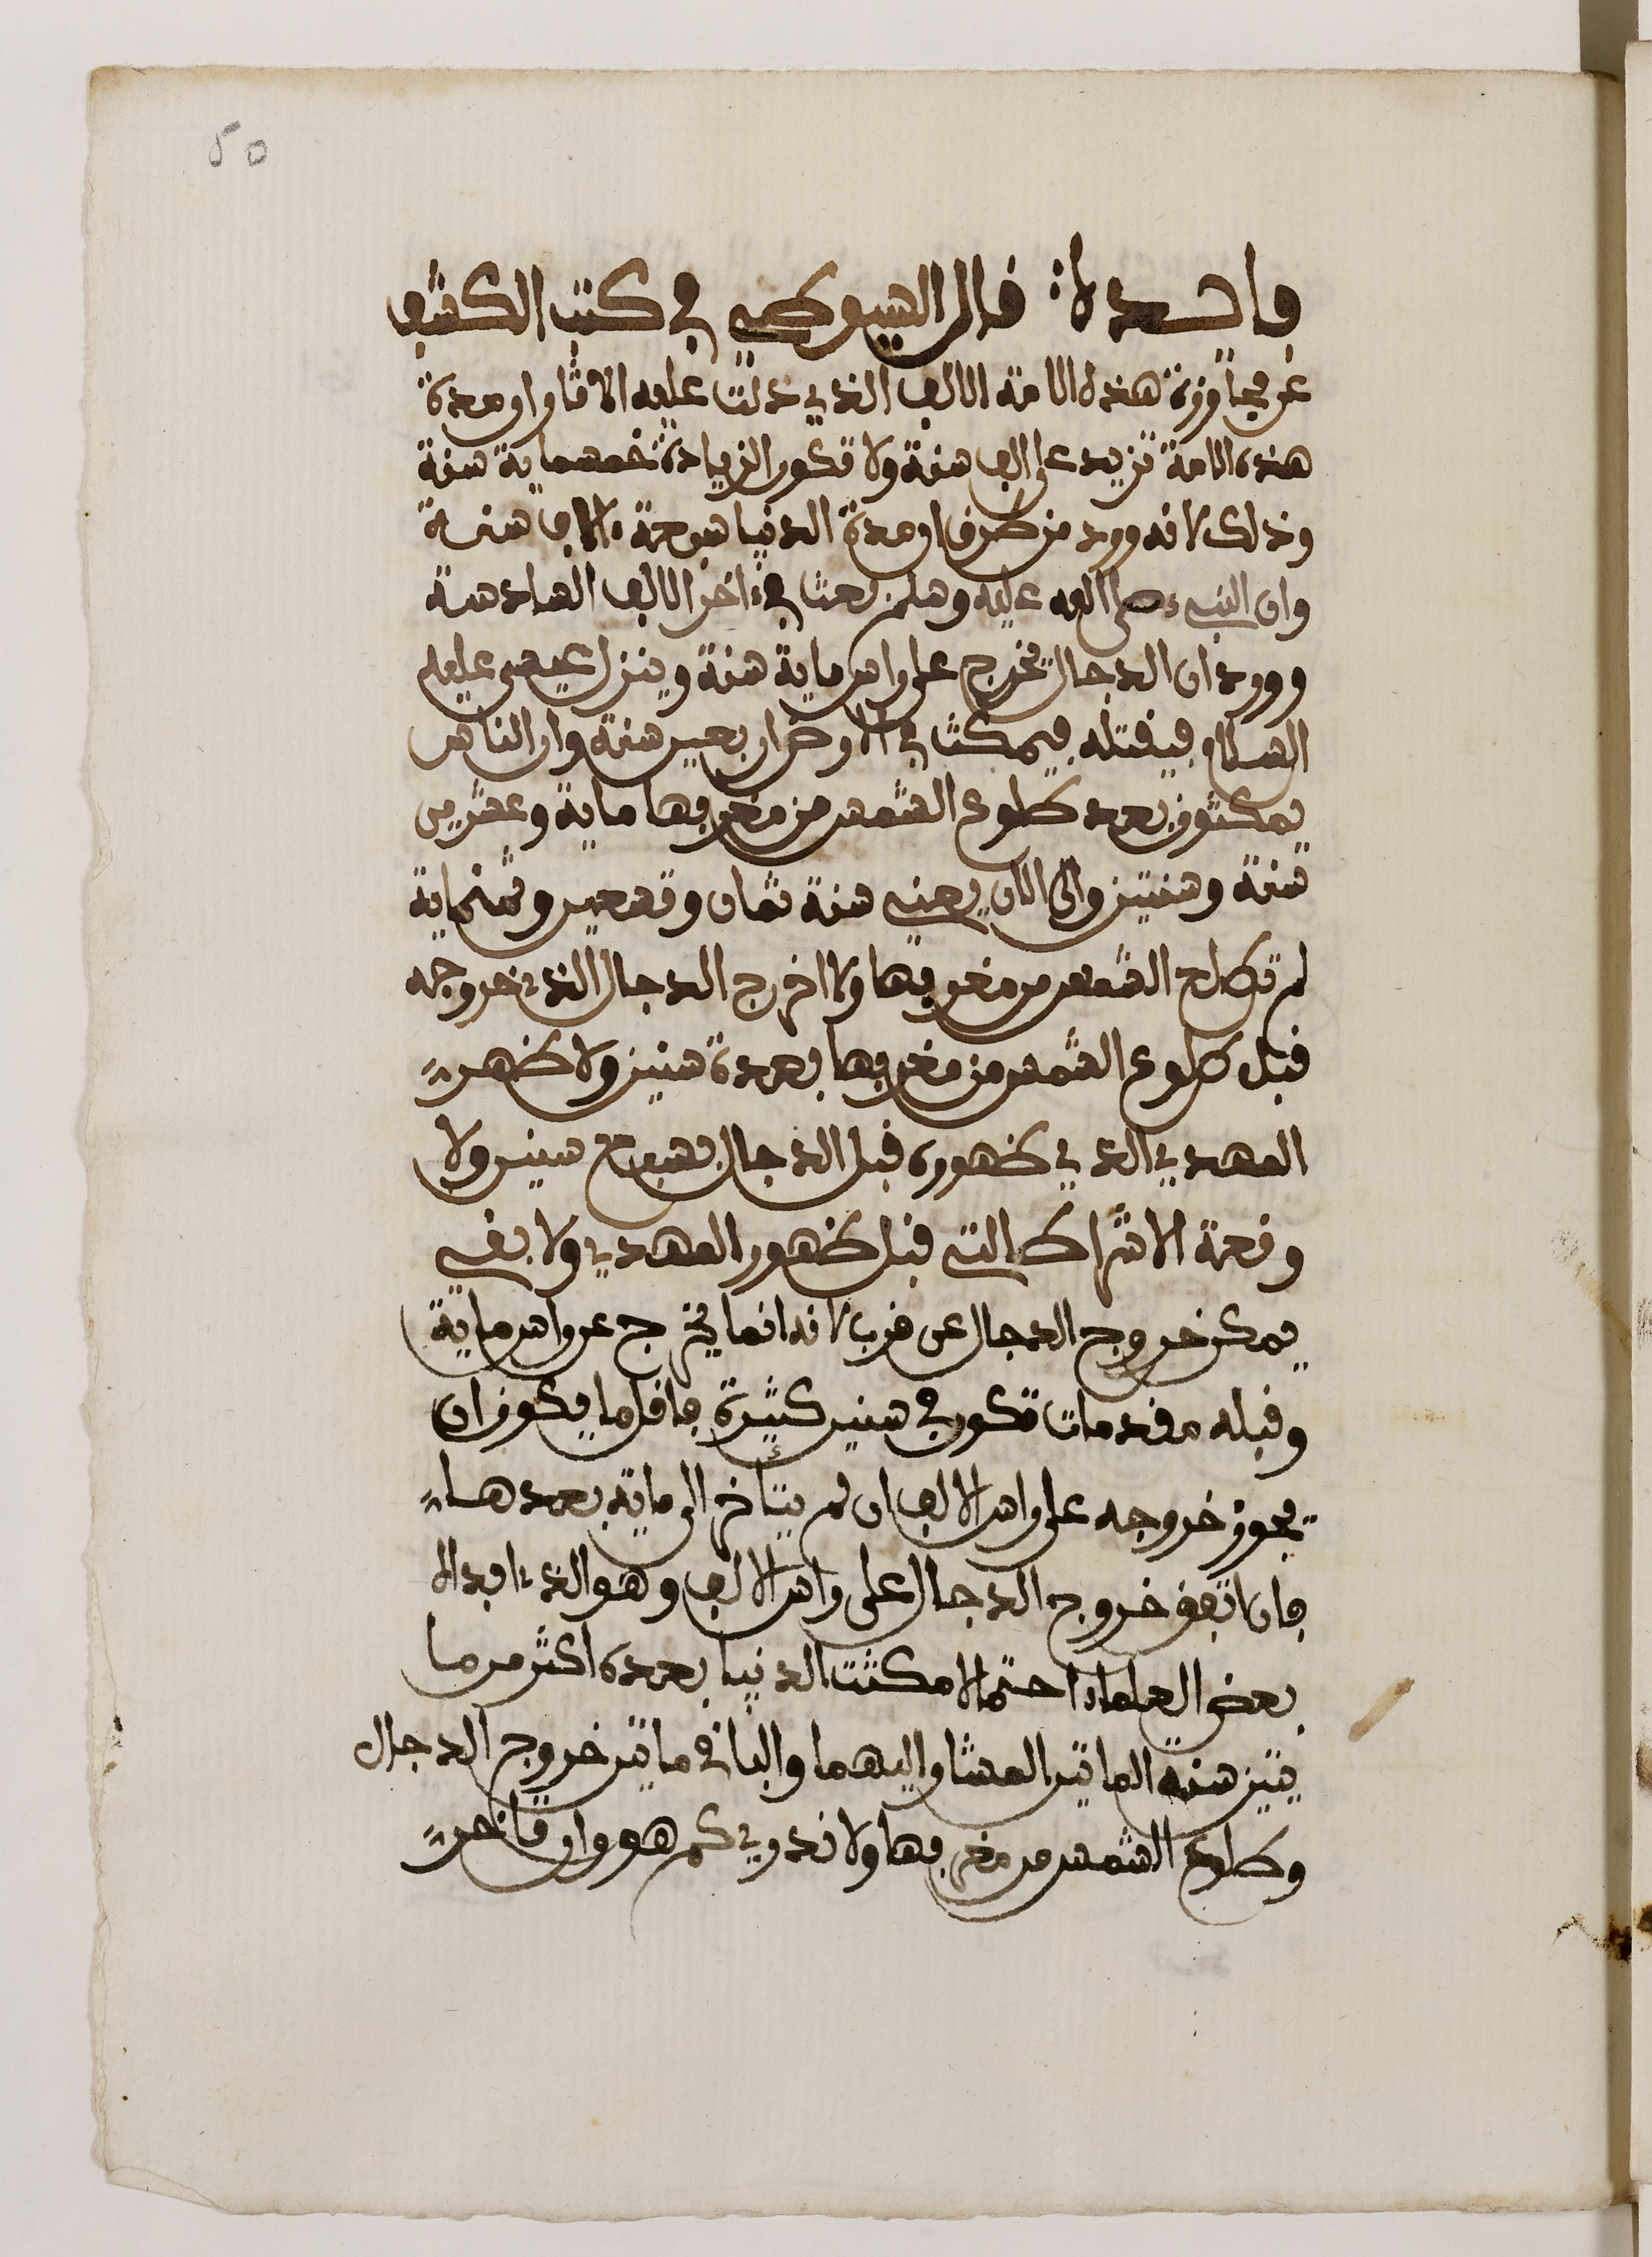 50
فايدة: قال السيوطي في كتب الكشف
عن مجاوزة هذه الامة الالف الذي دلت عليه الاثار ان مدة
هذه الامة تزيد على الف سنة ولا تكون الزيادة خمسماية سنة
وذلك لانه ورد من طرف ان مدة الدنيا سبعة ءالاف سنة
وان النبيء صلى الله عليه وسلم بعث في ءاخر الالف السادسة
وورد ان الدجال يخرج على راس ماية سنة وينزل عيسى عليه
السلام فيقتله فيمكث في الارض اربعين سنة وان الناس
يمكثون بعد طلوع الشمس من مغربها ماية وعشرين
سنة وسنتين والى الان يعني سنة ثمان وتسعين وثمنماية
لم تطلع الشمس من مغربها ولا اخرج الدجال الذي خروجه
قبل طلوع الشمس من مغربها بعدة سنين ولا ظهر
المهدي الذي ظهوره قبل الدجال بسبع سنين ولا
وقعة الاشراط التي قبل ظهور المهدي ولا بقي
يمكن خروج الدجال عن قرب لانه انما يخرج عن راس ماية
وقبله مقدمات تكون في سنين كثيرة فاقل ما يكون ان
يجوز خروجه على راس الالف ان لم يتاخر الى ماية بعدها
فان اتفق خروج الدجال على راس الالف وهو الذي ابداه
بعض العلماء احتمالا مكثت الدنيا بعده اكثر من ما
يتين سنة الماتين المشار اليهما والباقي ما بين خروج الدجال
وطلوع الشمس من مغربها ولا ندري كم هو وان تاخر